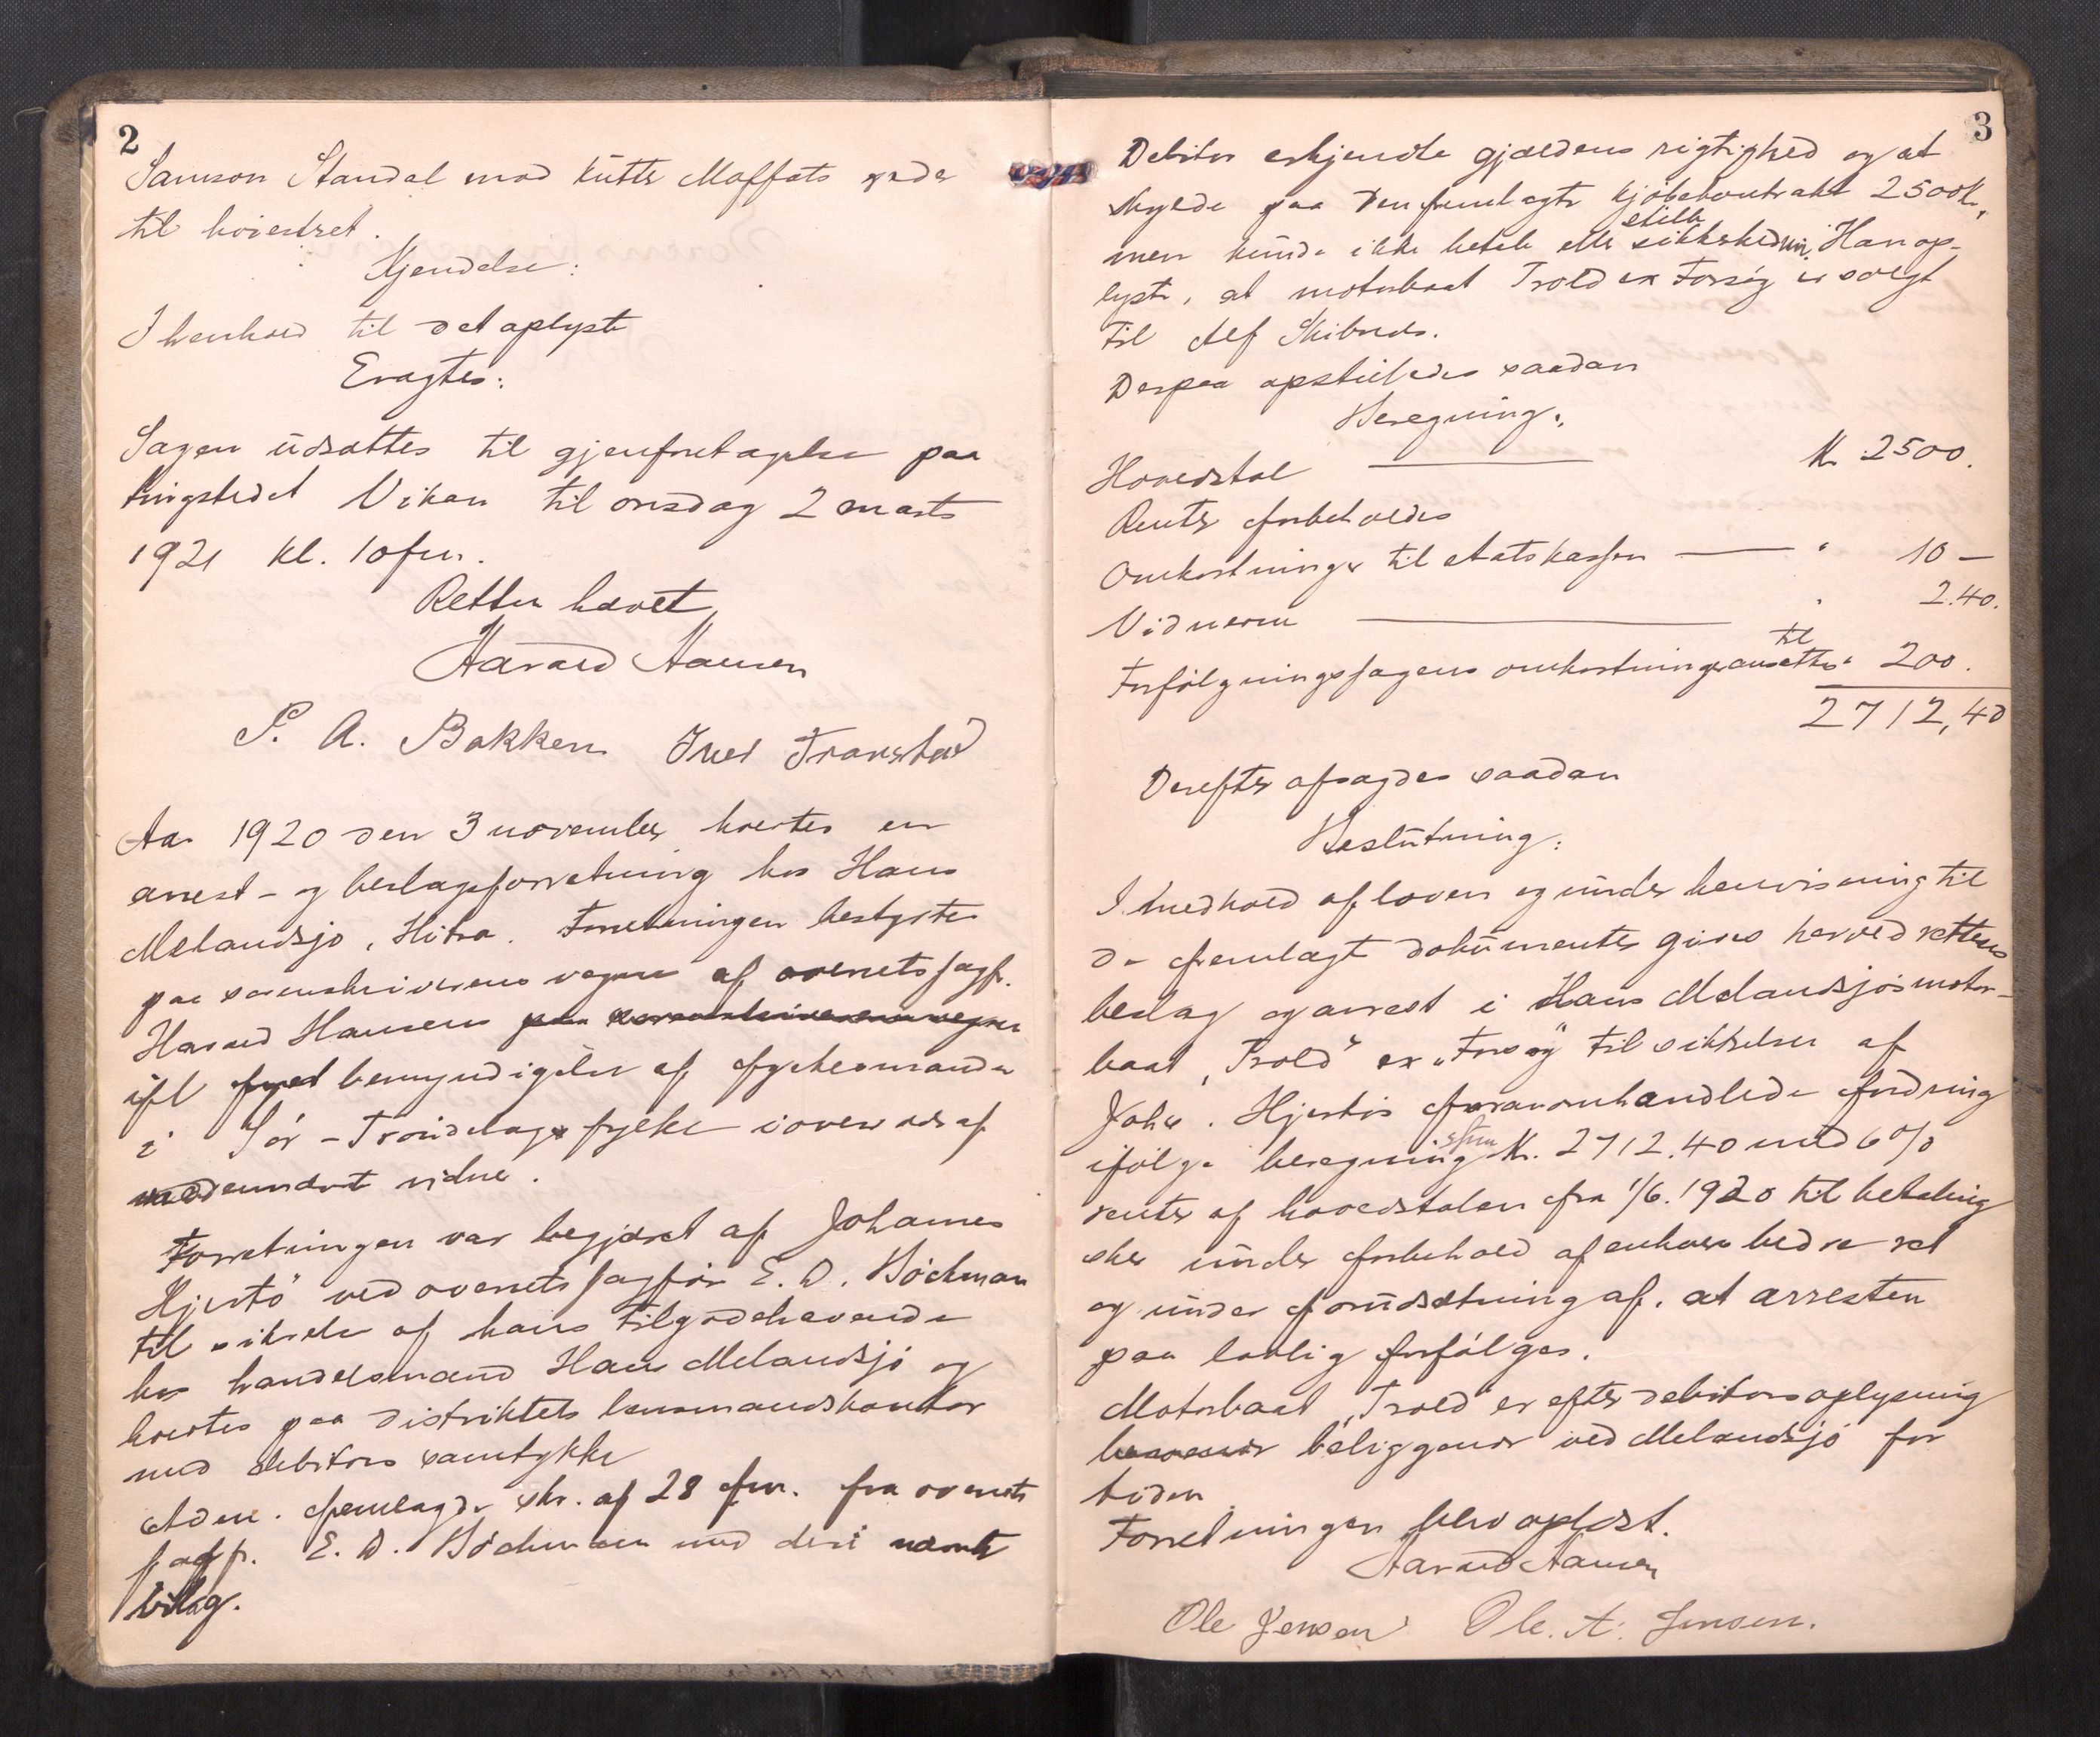 2
Samson Standal mod kutter Moffats rede
til høiestret.
Kjendelse:
I henhold til det oplyste
Eragtes:
Sagen utsættes til gjenforetagelse paa
tingstedet Viken til onsdag 2 marts
1921 kl. 10 fm.
Retten hævet
Harald Hansen
P. A. Bakken Iver Transtad
Aar 1920 den 3 november holdtes en
arrest- og beslagsforretning hos Hans
Melandsjø, Hitra. Forretningen bestyrtes
paa sorenskriverens vegne af overretssagf.
Harald Hansen paa sorenskriverens vegne
ifl bemyndigelse af fylkesmanden
i Sør-Trøndelags fylke i overvær af
medundert. vidne.
Forretningen var begjæret af Johannes
Hjertø ved overretssagfør E. D. Bøckman
til sikrelse af hans tilgodehavende
hos handelsmand Hans Melandsjø og
holdtes paa distriktets lensmandskontor
med debitors samtykke
Adm. fremlagde skr. af 28 fm. fra overrets
sagf. E. D. Bøckman med deri nævnte
bilag.
3
Debitor erkjendte gjældens rigtighed og at
skylde paa den fremlagte kjøbekontrakt 2500 kr,
men kunde ikke betale eller stille sikkerhed. Han op-
lyste, at motorbaat Trold ex Forsøg er solgt
til Alf Skibnes.
Derpaa opstilledes saadan
Beregning:
Hovedstol Kr. 2500.
Renter forbeholdes
Omkostninger til statskassen " 10 –
Vidnerne " 2.40.
Forfølgningssagens omkostninger ansættes til " 200.
2712,40
Derefter afsagdes saadan
Beslutning:
I medhold af loven og under henvisning til
de fremlagt dokumenter gives herved rettens
beslag og arrest i Hans Melandsjøs motor-
baat "Trold" ex "Forsøg" til sikkelse af
Johs. Hjertøs foranomhandlede fordring
ifølge beregning stor Kr. 2712.40 med 6%
renter af hovedstolen fra 1/6. 1920 til betaling
sker under forbehold af enhver bedre ret
og under forudsætning af, at arresten
paa lovlig forfølges.
Motorbaat "Trold" er efter debitors oplysning
beliggende ved Melandsjø for
tiden.
Forretningen blev oplæst.
Harald Hansen
Ole Jensen Ole. A. Jensen.